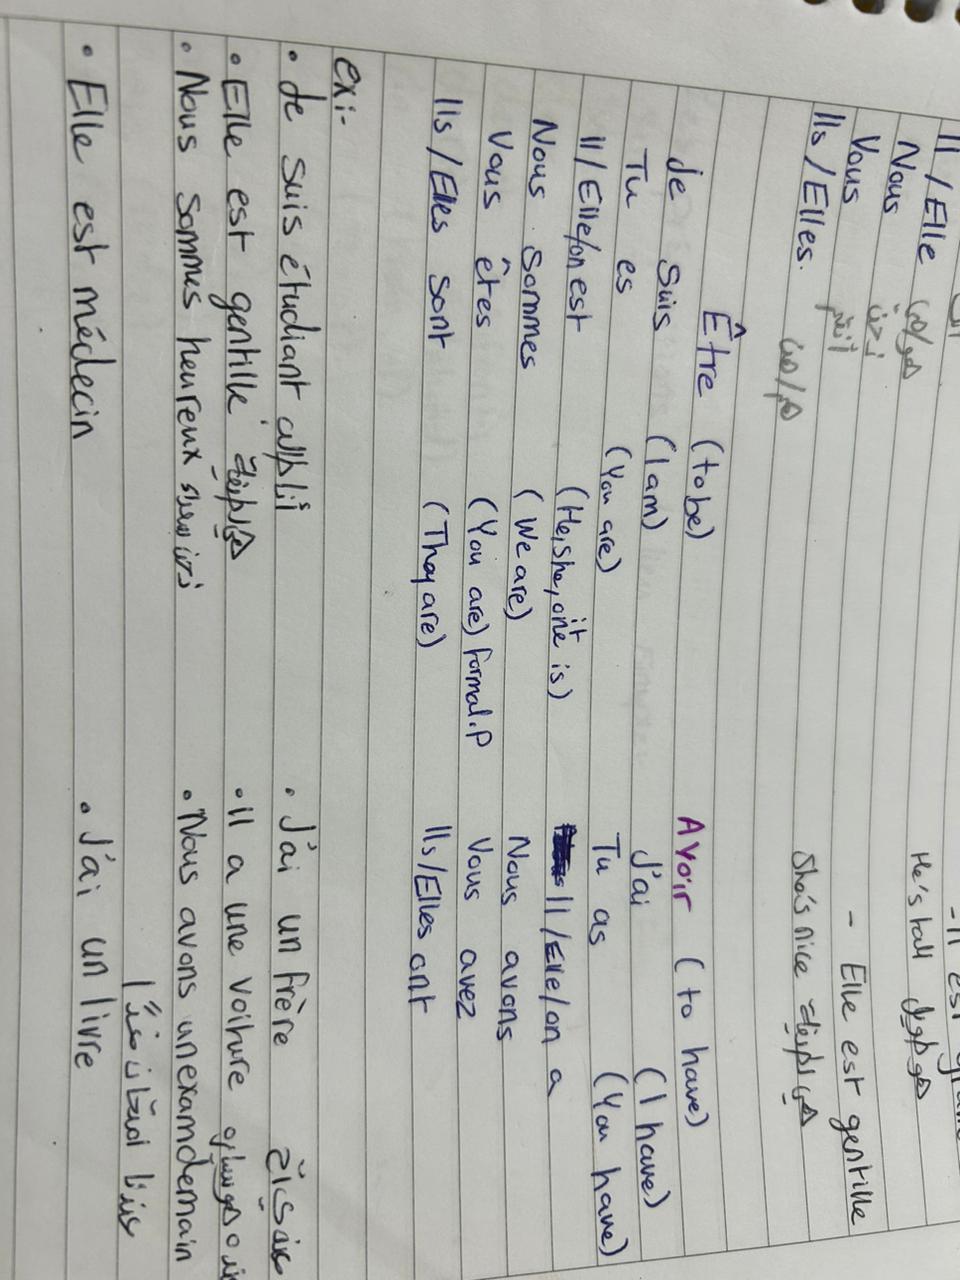 Il /Elle هو/هي
He's tall هو طويل
Nous نحن
- Elle est gentille
Vous أنتم
She's nice هي لطيفة
Ils /Elles. هم/هن
Être (to be)
Avoir (to have)
Je suis (I am)
J'ai (I have)
Tu es (You are)
Tu as (You have)
Il/Elle/on est (He, she, one it is)
Il/Elle/on a
Nous sommes (We are)
Nous avons
Vous êtes (You are) formal.P
Vous avez
Ils/Elles sont (They are)
Ils/Elles ont
ex:-
• Je suis étudiant أنا طالب
• J'ai un frère
• Elle est gentille هي لطيفة
• Il a une voiture
• Nous sommes heureux نحن سعداء
• Nous avons un examen demain
عندنا امتحان غداً
• Elle est médecin
• J'ai un livre